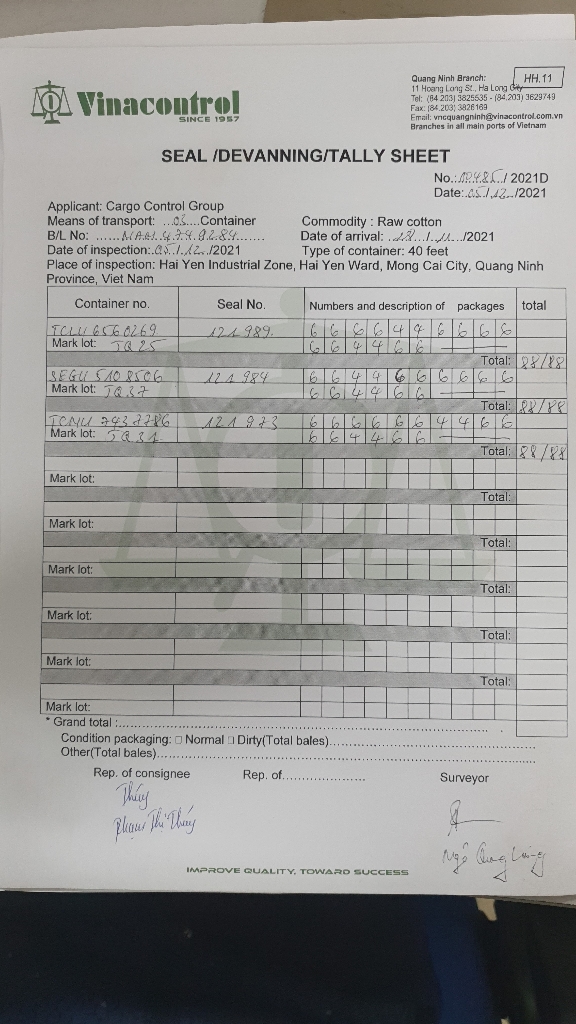 Quang Ninh Branch:
HH.11
11 Hoang Long St., Ha Long City
Tel: (84.203) 3825535 - (84.203) 3629749
Fax: (84.203) 3826169
Email: vncquangninh@vinacontrol.com.vn
Branches in all main ports of Vietnam
Vinacontrol
SINCE 1957
SEAL /DEVANNING/TALLY SHEET
No.: / 2021D
Date: 05/12/2021
Applicant: Cargo Control Group
Means of transport: ...03....Container
Commodity : Raw cotton
B/L No:
Date of arrival: /2021
Date of inspection: 05/12/2021
Type of container: 40 feet
Place of inspection: Hai Yen Industrial Zone, Hai Yen Ward, Mong Cai City, Quang Ninh
Province, Viet Nam
Container no. Seal No. Numbers and description of packages total
TCLU 6560269 121989 6 6 6 6 4 4 6 6 6 6
Mark lot: JQ25 6 6 4 4 6 6
Total: 88/88
SEGU 5108506 121984 6 6 4 4 6 6 6 6 6 6
Mark lot: JQ37 6 6 4 4 6 6
Total: 88/88
121973 6 6 6 6 6 6 4 4 6 6
Mark lot: JQ31 6 6 4 4 6 6
Total: 88/88
Mark lot:
Total:
Mark lot:
Total:
Mark lot:
Total:
Mark lot:
Total:
Mark lot:
Total:
Mark lot:
* Grand total :
Condition packaging: □ Normal □ Dirty(Total bales)
Other(Total bales)
Rep. of consignee Rep. of Surveyor
Thúy
Phạm Thị Thúy
Ngô Quang
IMPROVE QUALITY, TOWARD SUCCESS